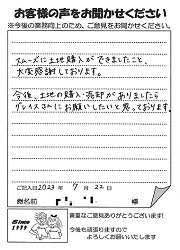 お客様の声をお聞かせください
※今後の業務向上のため、ご意見をお聞かせください。
スムーズに土地購入ができましたこと、
大変感謝しております。
今後、土地の購入・売却がありましたら
グレイスさんにお願いしたいと思っております。
ご記入日2023年7月22日
お名前 様
貴重なご意見ありがとうございます!
今後も頑張りますので
よろしくお願いいたします
Since
1999